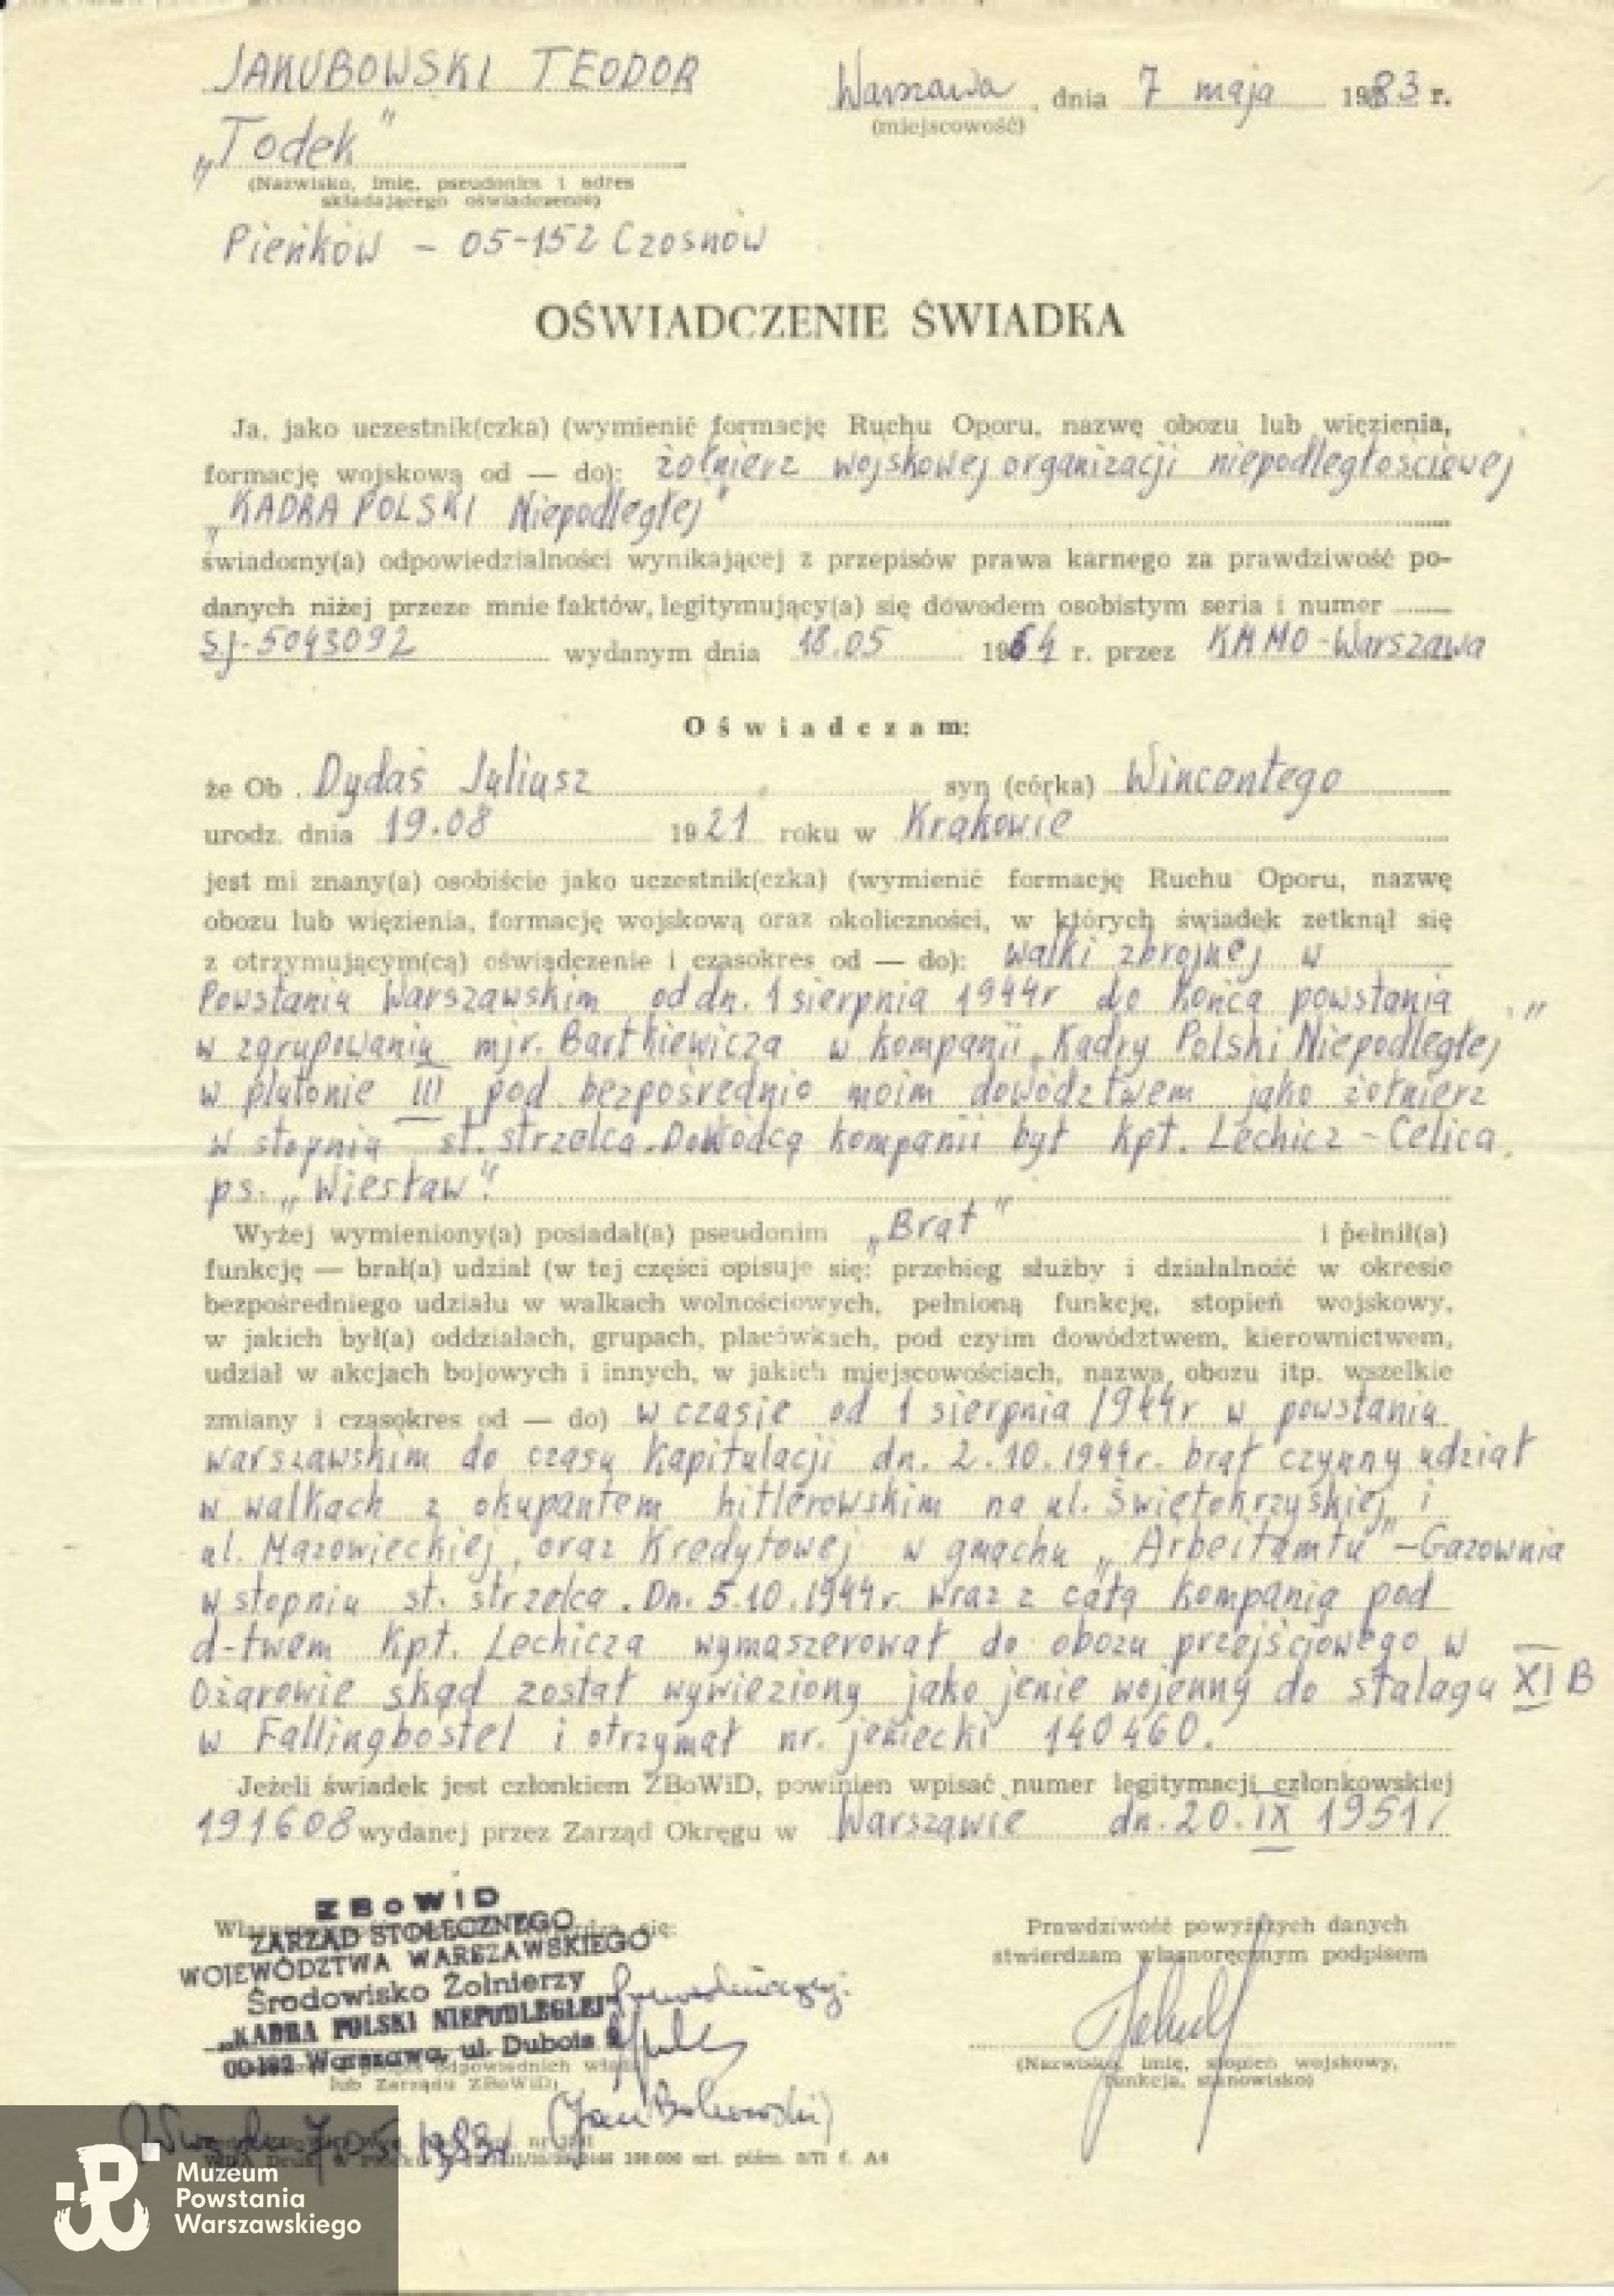 JAKUBOWSKI TEODOR
Warszawa, dnia 7 maja 1983 r.
(miejscowość)
„Todek"
(Nazwisko, imię, pseudonim i adres
składającego oświadczenie)
Pieńków - 05-152 Czosnów
OŚWIADCZENIE ŚWIADKA
Ja, jako uczestnik(czka) (wymienić formację Ruchu Oporu, nazwę obozu lub więzienia,
formację wojskową od — do): żołnierz wojskowej organizacji niepodległościowej
„KADRA POLSKI Niepodległej"
świadomy(a) odpowiedzialności wynikającej z przepisów prawa karnego za prawdziwość po-
danych niżej przeze mnie faktów, legitymujący(a) się dowodem osobistym seria i numer
SJ-5043092 wydanym dnia 18.05 1964 r. przez KMMO-Warszawa
Oświadczam:
że Ob. Dydaś Juliusz syn (córka) Wincentego
urodz. dnia 19.08 1921 roku w Krakowie
jest mi znany(a) osobiście jako uczestnik(czka) (wymienić formację Ruchu Oporu, nazwę
obozu lub więzienia, formację wojskową oraz okoliczności, w których świadek zetknął się
z otrzymującym(cą) oświadczenie i czasokres od — do): walki zbrojnej w
Powstaniu Warszawskim od dn. 1 sierpnia 1944r do końca powstania
w zgrupowaniu mjr. Bartkiewicza w kompanii „Kadry Polski Niepodległej"
w plutonie III pod bezpośrednio moim dowództwem jako żołnierz
w stopniu st. strzelca. Dowódcą kompanii był kpt. Lechicz - Celica
ps. „Wiesław".
Wyżej wymieniony(a) posiadał(a) pseudonim „Brat" i pełnił(a)
funkcję — brał(a) udział (w tej części opisuje się: przebieg służby i działalność w okresie
bezpośredniego udziału w walkach wolnościowych, pełnioną funkcję, stopień wojskowy,
w jakich był(a) oddziałach, grupach, placówkach, pod czyim dowództwem, kierownictwem,
udział w akcjach bojowych i innych, w jakich miejscowościach, nazwa obozu itp. wszelkie
zmiany i czasokres od — do) w czasie od 1 sierpnia 1944r w powstaniu
warszawskim do czasu kapitulacji dn. 2.10.1944r. brał czynny udział
w walkach z okupantem hitlerowskim na ul. Świętokrzyskiej i
ul. Mazowieckiej, oraz Kredytowej w gmachu „Arbeitamtu" - Gazownia
w stopniu st. strzelca. Dn. 5.10.1944r. wraz z całą kompanią pod
d-twem kpt. Lechicza wymaszerował do obozu przejściowego w
Ożarowie skąd został wywieziony jako jeniec wojenny do stalagu XI B
w Fallingbostel i otrzymał nr. jeniecki 140460.
Jeżeli świadek jest członkiem ZBoWiD, powinien wpisać numer legitymacji członkowskiej
191608 wydanej przez Zarząd Okręgu w Warszawie dn. 20.IX 1951r
ZBoWiD
ZARZĄD STOŁECZNEGO
WOJEWÓDZTWA WARSZAWSKIEGO
Środowisko Żołnierzy
„KADRA POLSKI NIEPODLEGŁEJ"
Warszawa, ul. Dubois
odpowiednich
lub Zarządu ZBoWiD)
Prawdziwość powyższych danych
stwierdzam własnoręcznym podpisem
(Nazwisko, imię, stopień wojskowy,
funkcja, stanowisko)
Muzeum
Powstania
Warszawskiego